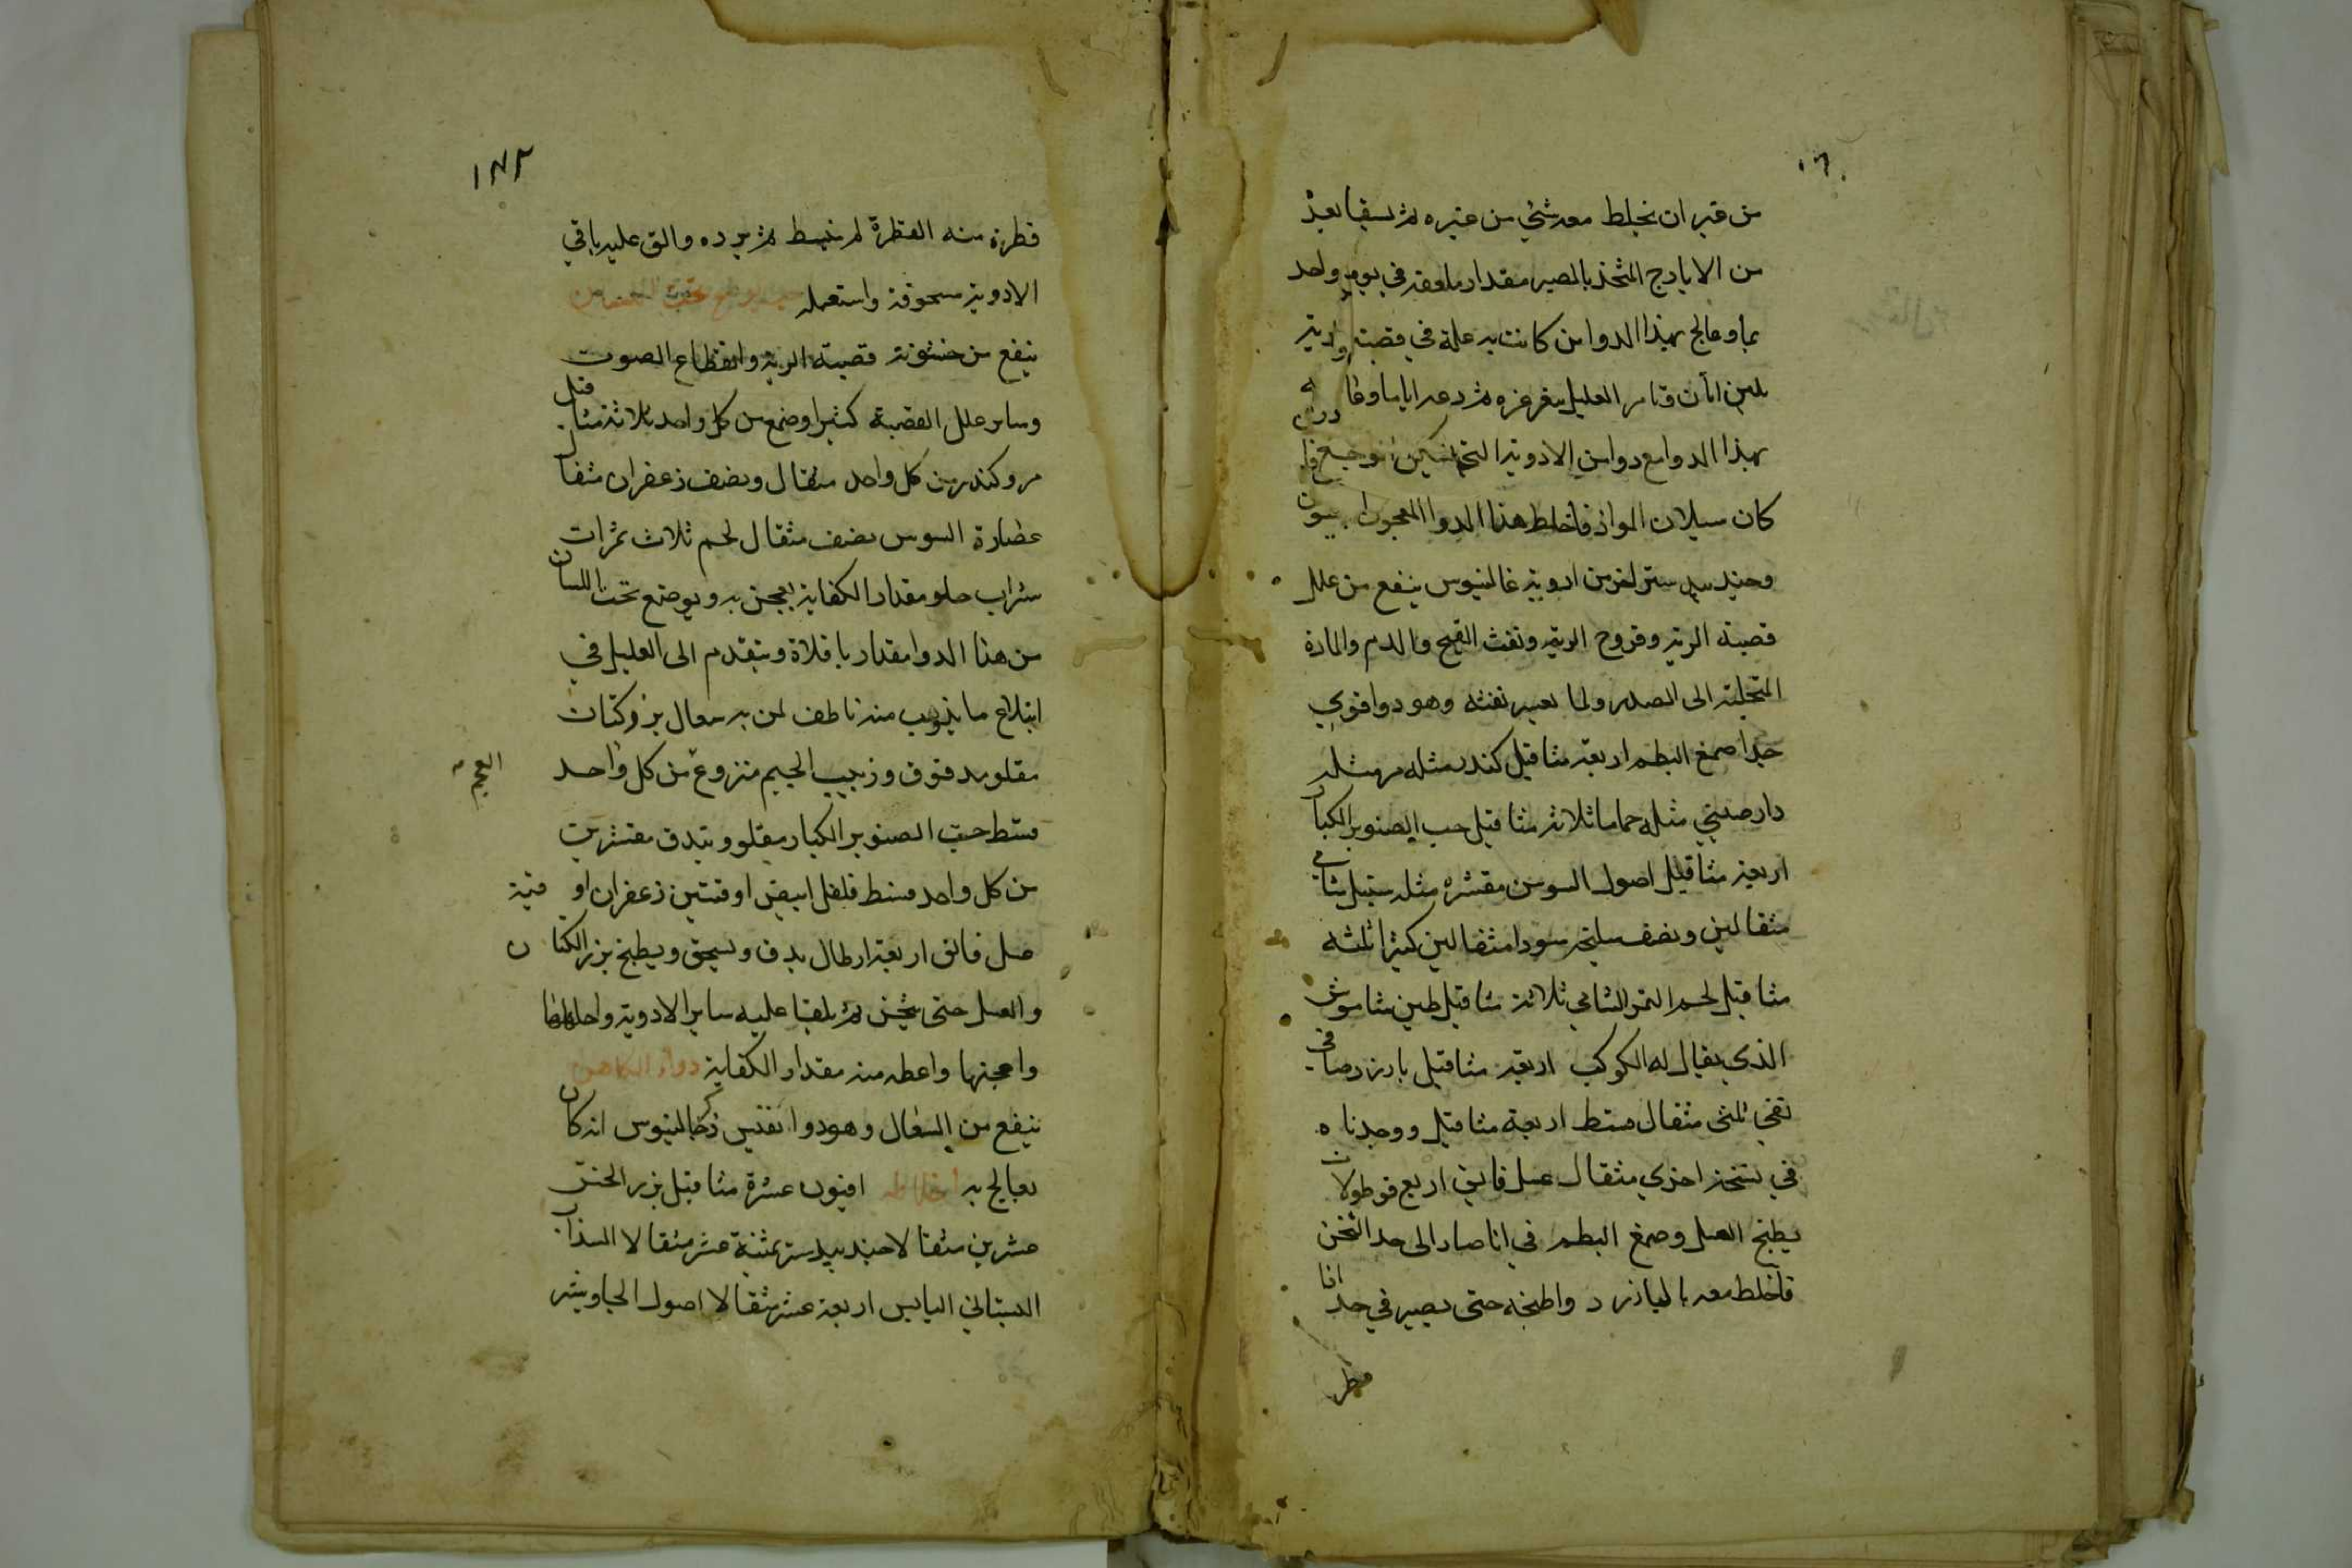 من غير ان يخلط معه شئ من غيره ثم يسقا بعد
من الايارج المتخذ بالصبر مقدار ملعقة في يوم واحد
بما وعالج بهذا الدوا من كانت به علة في قصبة رئته
العليل يغرغره ثم دعه اياما
بهذا الدوا مع دوا من الادوية التي
كان سيلان المواد فاخلط هذا الدوا المعجون
وجندبيدستر اخر من ادوية غالنيوس ينفع من علل
قصبة الرية وقروح الرية ونفث القيح والدم والمادة
المتجلبة الى الصدر ولما يعسر نفثه وهو دوا قوي
جدا صمغ البطم اربعة مثاقيل كندر مثله مر مثله
دارصيني مثله حماما ثلاثة مثاقيل حب الصنوبر الكبار
اربعة مثاقيل اصول السوسن مقشره مثله سنبل شامي
مثقالين ونصف سليخه سودا مثقالين كثيرا ثلثه
مثاقيل لحم التمر الشامي ثلاثة مثاقيل طين شاموس
الذي يقال له الكوكب اربعة مثاقيل بارزد صافي
نقي ثلثى مثقال قسط اربعة مثاقيل ووجدناه
في نسخة اخري مثقال عسل فايق اربع قوطولات
يطبخ العسل وصمغ البطم في انا صار الى حد الثخن
فاخلط معه بالبازرد واطبخه حتى يصير في حد اذا
قطر
١٧٢
قطرة منه القطرة لم تنبسط ثم برده والق عليه باقي
الادوية مسحوقة واستعمله
ينفع من خشونة قصبة الرية وانقطاع الصوت
وساير علل القصبة كثيرا وصمغ من كل واحد ثلاثة مثاقيل
مر وكندر من كل واحد مثقال ونصف زعفران مثقال
عصارة السوس نصف مثقال لحم ثلاث تمرات
شراب حلو مقدار الكفاية يعجن به ويوضع تحت اللسان
من هذا الدوا مقدار باقلاة ويتقدم الى العليل في
ابتلاع ما يذوب منه ناطف لمن به سعال بزر كتان
مقلو مدقوق وزبيب لحيم منزوع من كل واحد
العجم
قسط حب الصنوبر الكبار مقلو وبندق مقشرين
من كل واحد قسط فلفل ابيض اوقتين زعفران اوقية
عسل فائق اربعة ارطال يدق ويسحق ويطبخ بزر الكتان
والعسل حتى يثخن ثم يلقا عليه ساير الادوية واخلطها
واعجنها واعطه منه مقدار الكفاية دواء الكاهن
ينفع من السعال وهو دوا نفيس ذكر جالنيوس انه كان
يعالج به اخلاطه افيون عشرة مثاقيل بزر الخس
عشرين مثقالا جندبيدستر ثمنية عشر مثقالا السذاب
البستاني اليابس اربعة عشر مثقالا اصول الجاوشير